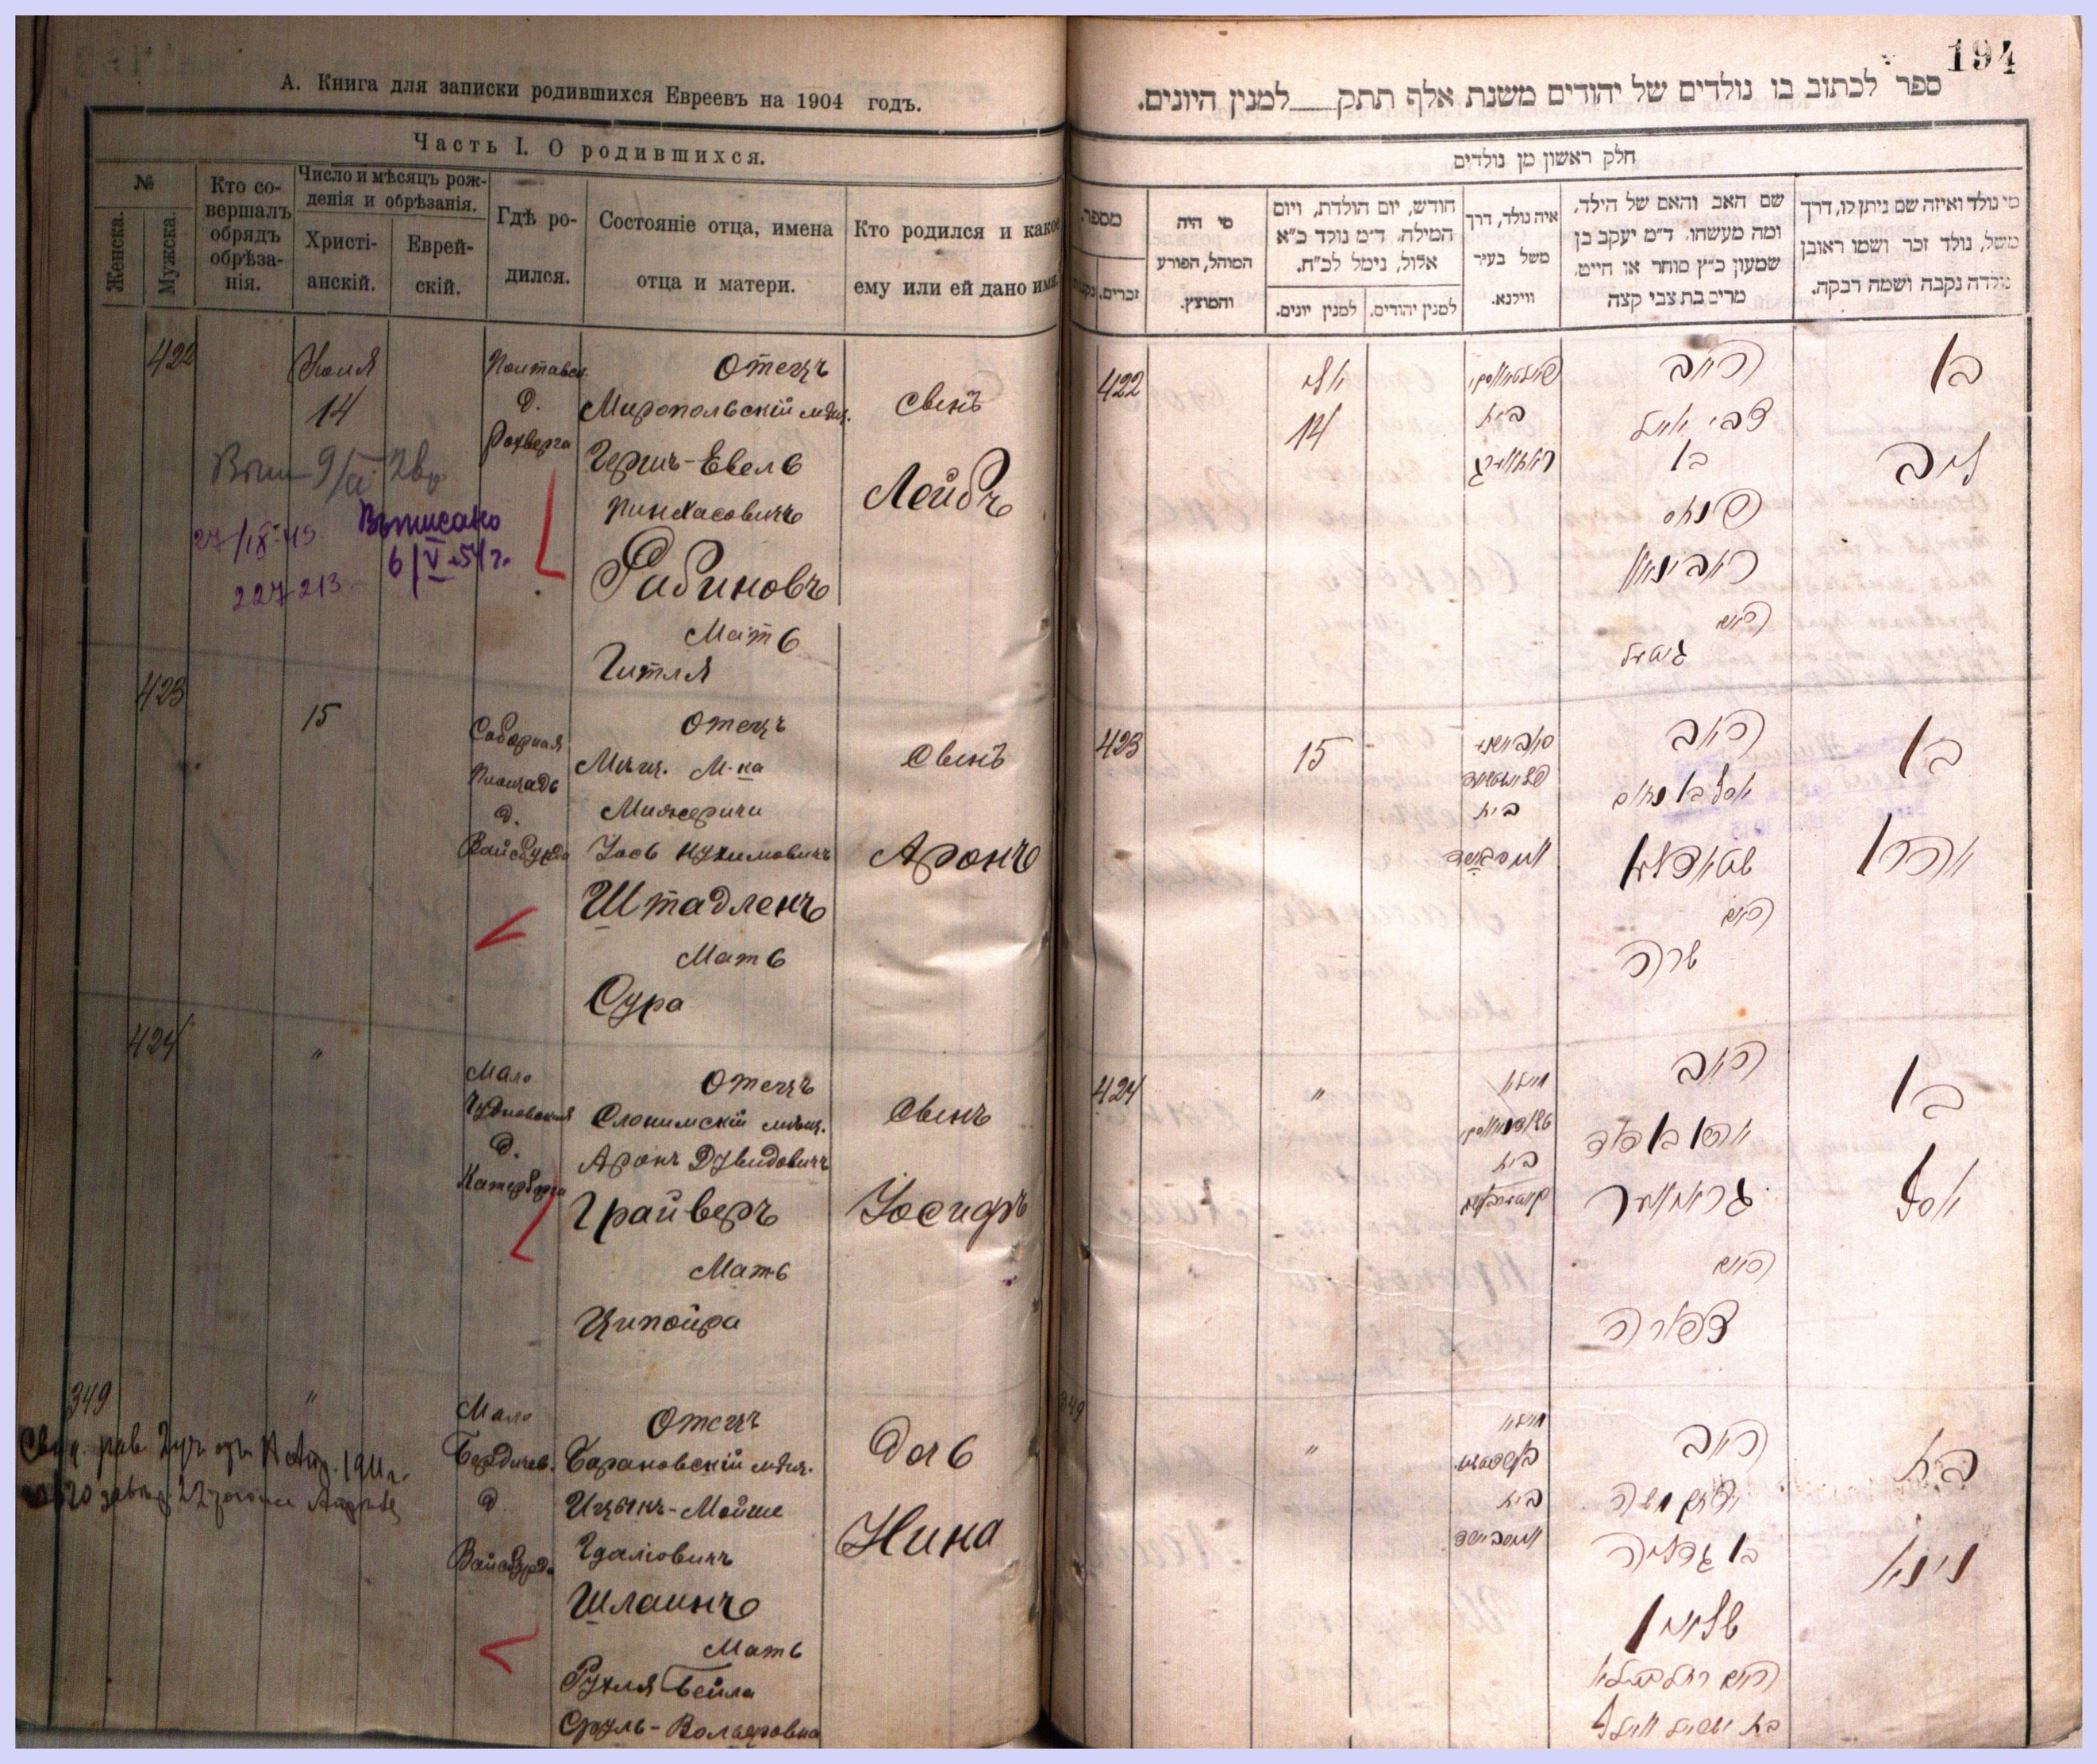 А. Книга для записки родившихся Евреевъ на 1904 годъ.
Часть I. О родившихся.
№
Женска.
Мужска.
Кто со-
вершалъ
обрядъ
обрѣза-
нія.
Число и мѣсяцъ рож-
денія и обрѣзанія.
Христі-
анскій.
Еврей-
скій.
Гдѣ ро-
дился.
Состояніе отца, имена
отца и матери.
Кто родился и какое
ему или ей дано имя.
422
14
27/IX-45
227213
Выписано
6/V-54г.
д.
Отецъ
Миропольскій мѣщ.
Герш-Евель
Пинхасовичъ
Рабиновъ
Мать
Гитля
свенъ
Лейбъ
423
15
Соборная
Площадь
д.
Вайсбурда
Отецъ
Мѣщ. М-ка
Мижеричи
Іось Нухимовичъ
Штадленъ
Мать
Сура
свенъ
Аронъ
424
"
Мало
Чудновская
д.
Отецъ
Слонимскій мѣщ.
Аронъ Дувидовичъ
Грайверъ
Мать
Ципойра
свенъ
Іосифъ
349
"
Мало
Бердичев.
д.
Вайсбурда
Отецъ
Барановскій мѣщ.
Ицыкъ-Мойше
Гдаліовичъ
Шлаинъ
Мать
Рухля Бейла
Сруль-Вольфовна
дочь
Нина
194
ספר לכתוב בו נולדים של יהודים משנת אלף תתק למנין היונים.
חלק ראשון מן נולדים
מי נולד ואיזה שם ניתן לו, דרך
משל, נולד זכר ושמו ראובן
נולדה נקבה ושמה רבקה.
שם האב והאם של הילד,
ומה מעשהו. ד״מ יעקב בן
שמעון כ״ץ סוחר או חייט,
מרים בת צבי קצה
איה נולד, דרך
משל בעיר
ווילנא.
חודש, יום הולדת, ויום
המילה. ד״מ נולד כ״א
אלול, נימל לכ״ח.
למנין יהודים.
למנין יונים.
מי היה
המוהל, הפורע
והמוצץ.
מספר.
זכרים.
422
14
בית
האב
צבי
בן
פנחס
ראבינאוו
האם
גיטל
בן
ליב
423
15
בית
האב
יוסף בן נחום
שטאדלען
האם
שרה
בן
אהרן
424
"
בית
האב
אהרן בן דוד
גרייווער
האם
צפורה
בן
יוסף
349
"
בית
האב
יצחק משה
בן גדליה
שלאין
האם רחל ביילא
בת ישראל וואלף
בת
נינא